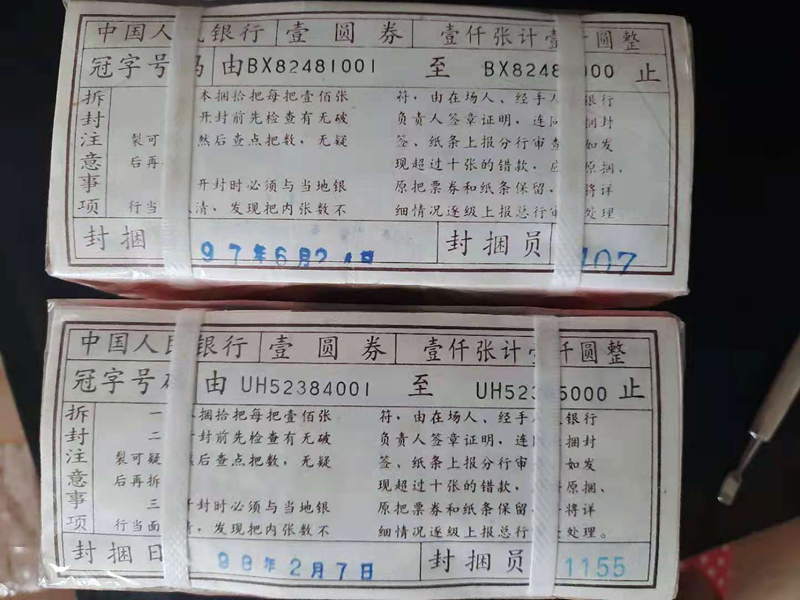 中国人民银行 壹圆券 壹仟张计壹仟圆整
冠字号码 由BX82481001 至 BX8248 000 止
拆封注意事项
本捆拾把每把壹佰张
开封前先检查有无破
裂可 然后查点把数，无疑
后再
开封时必须与当地银
行当 清，发现把内张数不
符，由在场人、经手人 银行
负责人签章证明，连同 捆封
签、纸条上报分行审查 如发
现超过十张的错款，应 原捆、
原把票券和纸条保留， 将详
细情况逐级上报总行 处理
封捆日 97年6月2 日 封捆员 407
中国人民银行 壹圆券 壹仟张计壹仟圆整
冠字号码 由 UH52384001 至 UH523 5000 止
拆封注意事项
一 本捆拾把每把壹佰张
二 开封前先检查有无破
裂可疑 然后查点把数，无疑
后再拆
三 开封时必须与当地银
行当面 清，发现把内张数不
符，由在场人、经手人 银行
负责人签章证明，连同 捆封
签、纸条上报分行审 如发
现超过十张的错款， 原捆、
原把票券和纸条保留 将详
细情况逐级上报总行 处理。
封捆日 98年2月7日 封捆员 1155